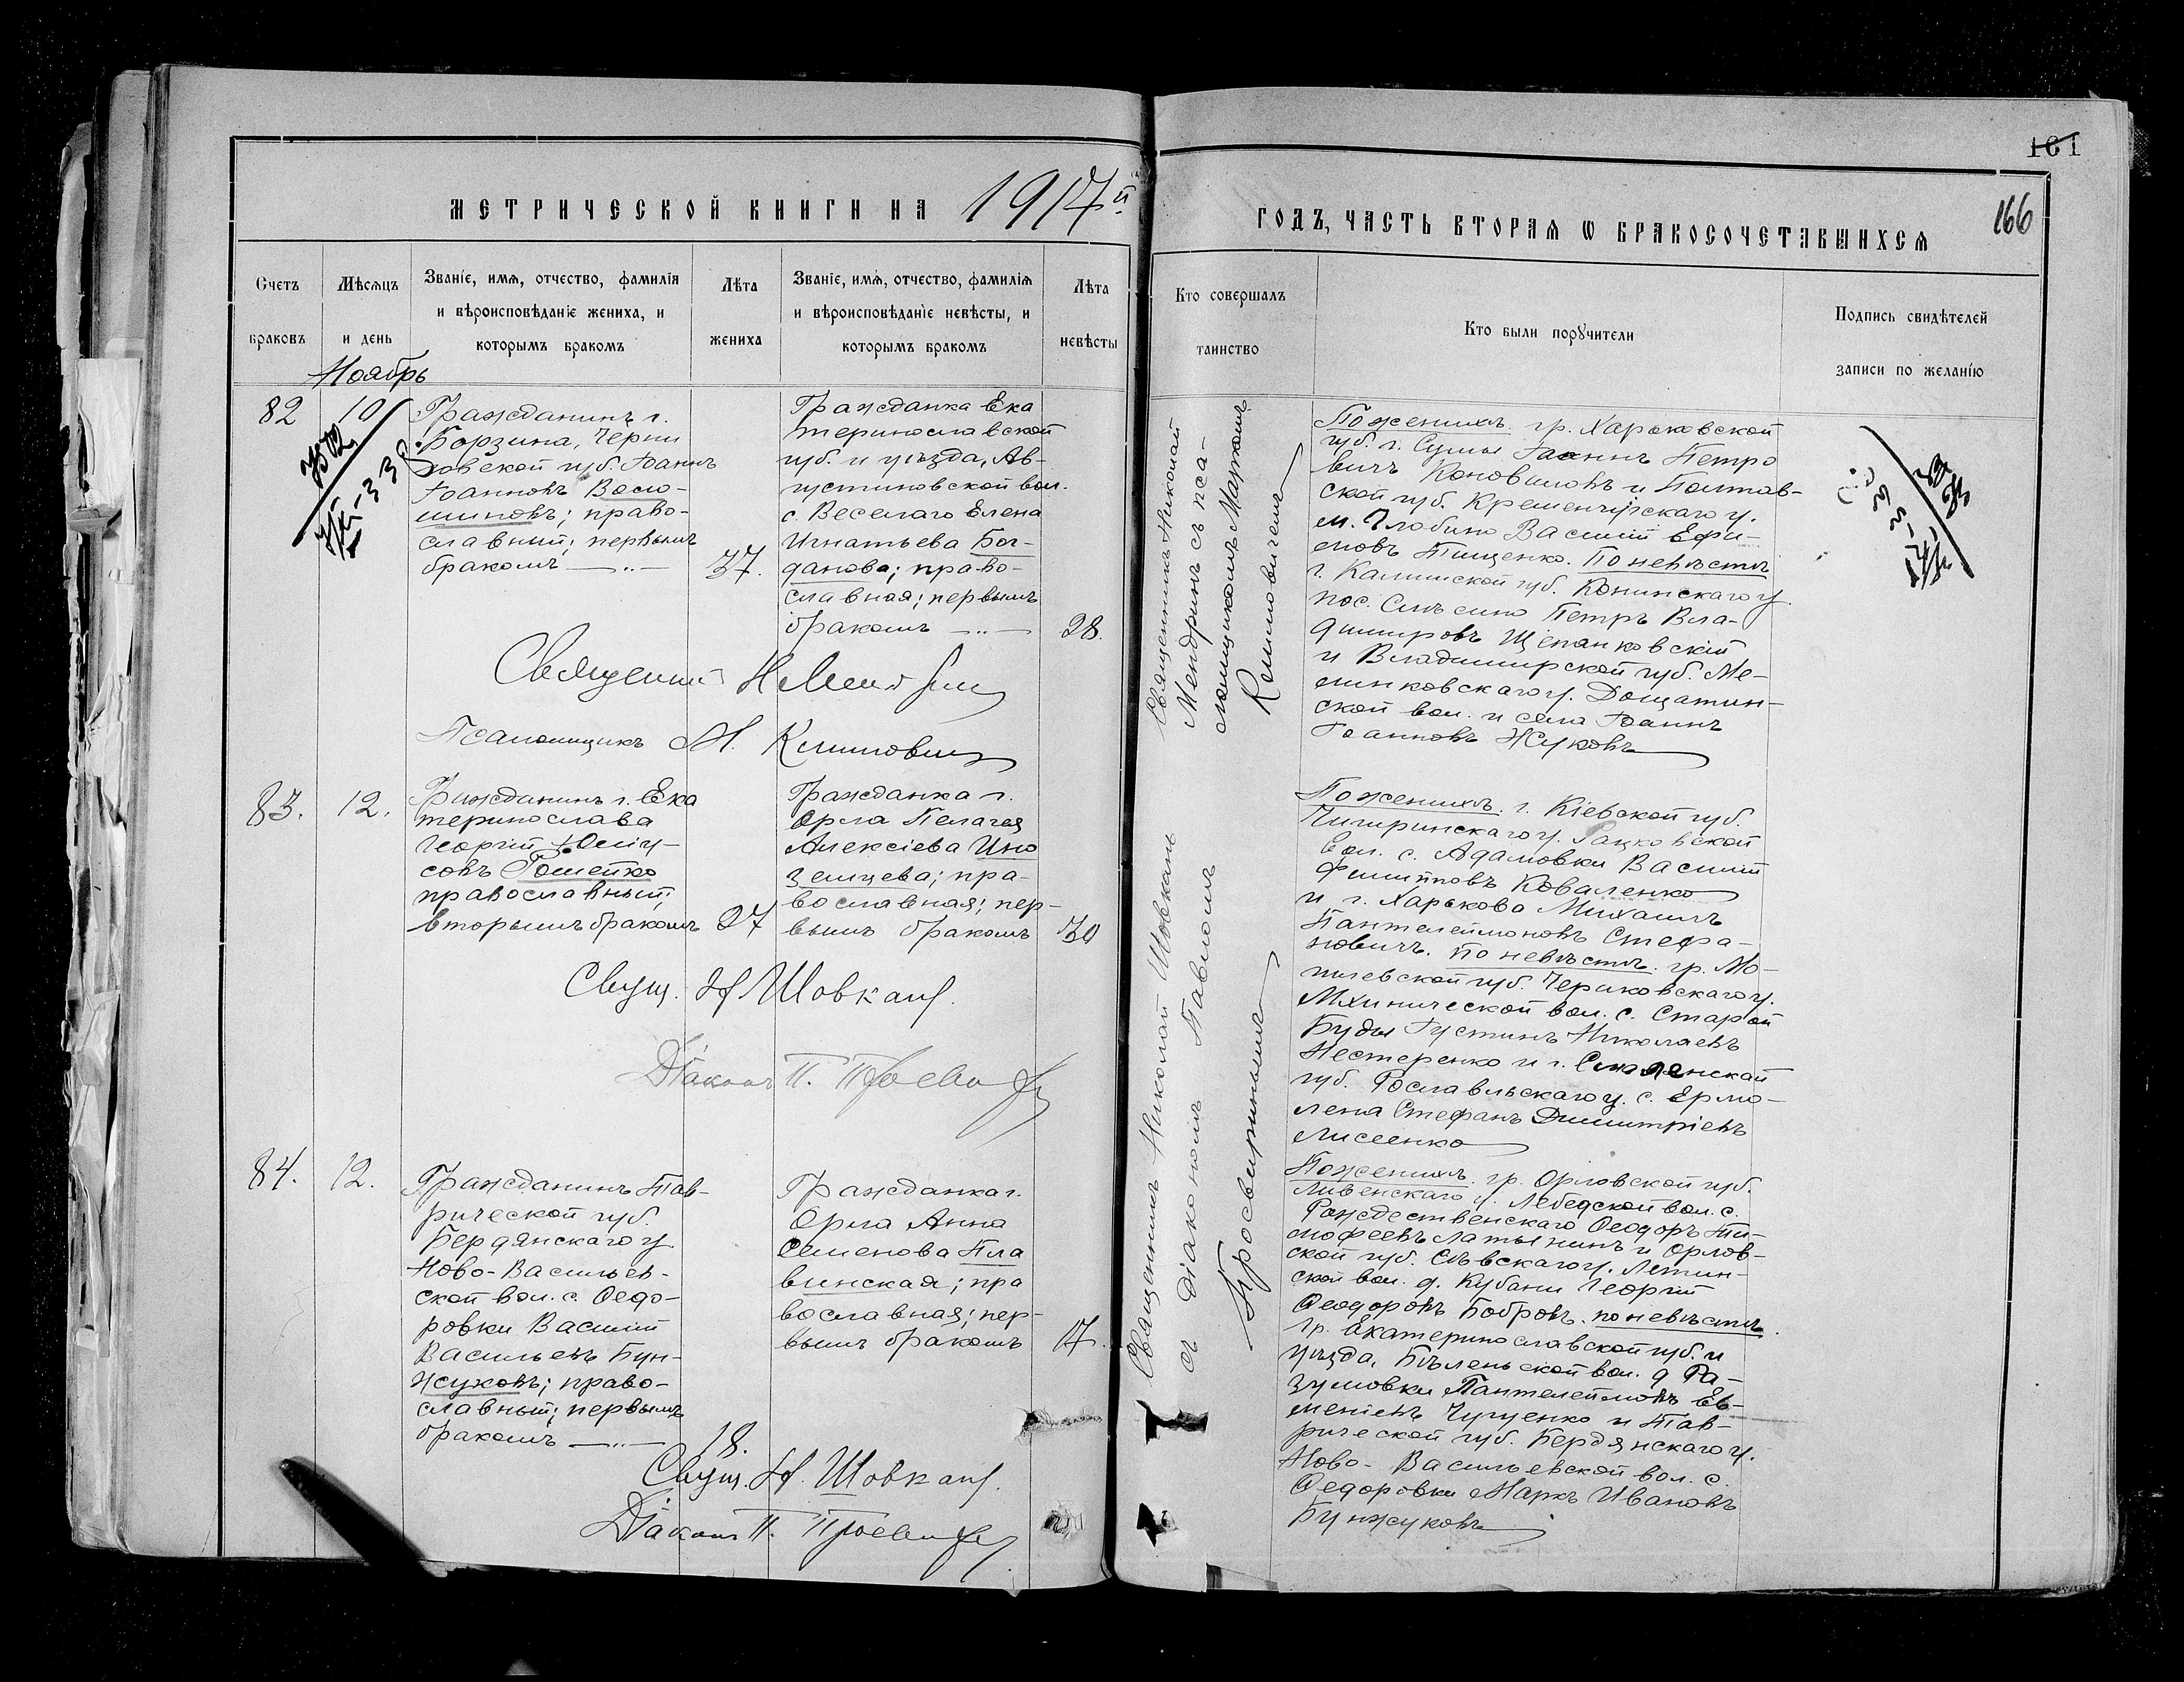 161
166
МЕТРИЧЕСКОЙ КНИГИ НА 1917й
ГОДЪ, ЧАСТЬ ВТОРАЯ Ѡ БРАКОСОЧЕТАВШИХСЯ
Счетъ браковъ
Мѣсяцъ и день
Званіе, имя, отчество, фамилія
и вѣроисповѣданіе жениха, и
которымъ бракомъ
Лѣта жениха
Званіе, имя, отчество, фамилія
и вѣроисповѣданіе невѣсты, и
которымъ бракомъ
Лѣта невѣсты
Кто совершалъ
таинство
Кто были порꙋчители
Подпись свидѣтелей
записи по желанію
Ноябрь
82
10
Гражданинъ г.
Борзина, Черни
говской губ. Іоаннъ
Іоанновъ Воло-
шиновъ; право-
славный; первымъ
бракомъ
37.
Гражданка Ека
теринославской
губ. и уѣзда, Ав-
густиновской вол.
с. Веселаго Елена
Игнатьева Бог-
данова; право-
славная; первымъ
бракомъ
28.
Священникъ Николай
Мендринъ съ пса-
ломщикомъ Маркомъ
Климовичемъ
По женихѣ. гр. Харьковской
губ. г. Сумы Іоаннъ Петро
вичъ Коноваловъ и Полтав-
ской губ. Кременчугскаго у.
м. Глобино Василій Ефи-
мовъ Тищенко. По невѣстѣ
г. Калишской губ. Конинскаго у.
пос. Слѣсино Петръ Вла-
диміровъ Щепанковскій
и Владимірской губ. Ме-
ленковскаго у. Дощатин-
ской вол. и села Іоаннъ
Іоанновъ Жуковъ
Священникъ Н Мендринъ
Псаломщикъ М. Климовичъ
83.
12.
Гражданинъ г. Ека
теринослава
Георгій
совъ
православный;
вторымъ бракомъ
27
Гражданка г.
Орла Пелагея
Алексіева Ино
земцева; пра-
вославная; пер-
вымъ бракомъ
30
Священникъ Николай Шовкань
съ діакономъ Павломъ
Просвирнинымъ
По женихѣ. г. Кіевской губ.
Чигиринскаго у. Рацковской
вол. с. Адамовки Василій
Филипповъ Коваленко
и г. Харькова Михаилъ
Пантелеймоновъ Стефа-
новичъ. по невѣстѣ. гр. Мо-
гилевской губ. Чериковскаго у.
Мхинической вол. с. Старой
Буды Іустинъ Николаевъ
Нестеренко и г. Смоленской
губ. Рославльскаго у. с. Ермо-
лена Стефанъ Димитріевъ
Лисеенко
Свящ. Н Шовкань.
Діаконъ П.
84.
12.
Гражданинъ Тав-
рической губ.
Бердянскаго у.
Ново-Васильев-
ской вол. с. Ѳедо-
ровки Василій
Васильевъ Бун-
жуковъ; право-
славный; первымъ
бракомъ
18.
Гражданка г.
Орла Анна
Семенова Пла
винская; пра
вославная; пер-
вымъ бракомъ
17.
По женихѣ. гр. Орловской губ.
Ливенскаго у. Лебедской вол. с.
Рождественскаго Ѳеодоръ Ти-
мофеевъ Латынинъ и Орлов-
ской губ. Сѣвскаго у. Летин-
ской вол. д. Кубани Георгій
Ѳеодоровъ Бобровъ. по невѣстѣ.
гр. Екатеринославской губ. и
уѣзда, Бѣленьской вол. д Ра-
зумовки Пантелеймонъ Ев-
меніевъ Чугуенко и Тав-
рической губ. Бердянскаго у.
Ново-Васильевской вол. с.
Ѳедоровки Маркъ Ивановъ
Бунжуковъ
Свящ. Н. Шовкань.
Діаконъ П.